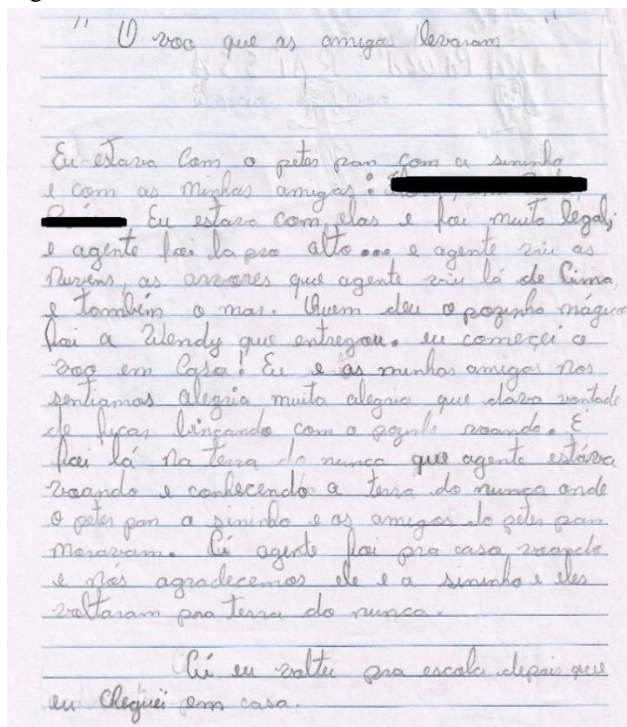 " O voo que as amigas levaram "
Eu estava Com o peter pan com a sininho
e com as minhas amigas:
Eu estava com elas e foi muito legal,
e agente foi la pro alto... e agente viu as
nuvens, as arvores que agente viu lá de Cima,
e também o mar. Quem deu o pozinho mágico
foi a Wendy que entregou. eu começei o
voo em Casa! Eu e as minhas amigas nos
sentiamos alegria muita alegria que dava vontade
de ficar brincando com o pozinho voando. E
foi lá na terra do nunca que agente estáva
voando e conhecendo a terra do nunca onde
o peter pan a sininho e os amigos do peter pan
moravam. Ci agente foi pra casa voando
e nós agradecemos ele e a sininho e eles
voltaram pra terra do nunca.
Ci eu voltei pra escola depois que
eu Cheguei em casa.